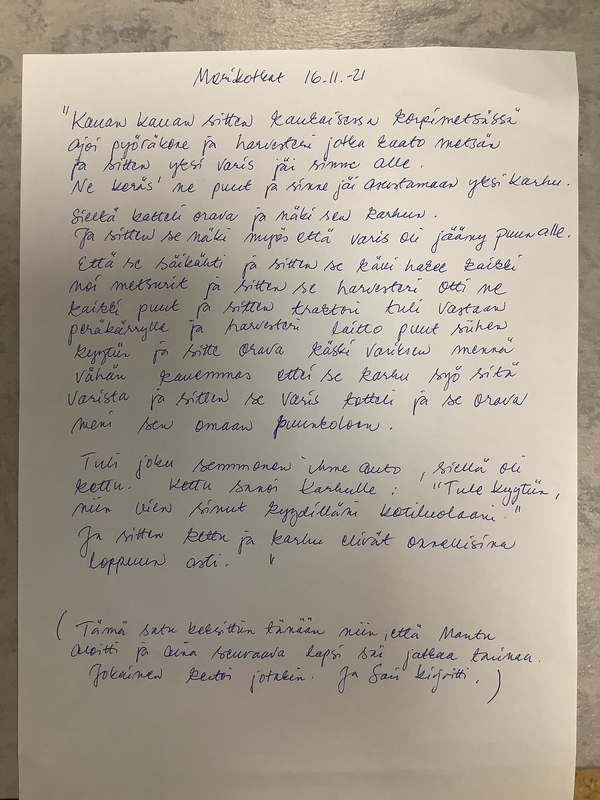 Merikotkat 16.11.-21
"Kauan kauan sitten kaukaisessa korpimetsässä
ajoi pyöräkone ja harvesteri jotka kaato metsän
ja sitten yksi varis jäi sinne alle.
Ne keräs' ne puut ja sinne jäi asustamaan yksi karhu.
Sieltä katteli orava ja näki sen karhun.
Ja sitten se näki myös että varis oli jääny puun alle.
Että se säikähti ja sitten se kävi hakee kaikki
noi metsurit ja sitten se harvesteri otti ne
kaikki puut ja sitten traktori tuli vastaan
peräkärryllä ja harvesteri laitto puut siihen
kyytiin ja sitte orava käski variksen mennä
vähän kauemmas ettei se karhu syö sitä
varista ja sitten se varis totteli ja se orava
meni sen omaan puunkoloon.
Tuli joku semmonen ihme auto, siellä oli
kettu. Kettu sanoi karhulle: "Tule kyytiin,
niin vien sinut kyydilläni kotiluolaani."
Ja sitten kettu ja karhu elivät onnellisina
loppuun asti. "
(Tämä satu keksittiin tänään niin, että Manta
aloitti ja aina seuraava lapsi sai jatkaa tarinaa.
Jokainen kertoi jotakin. Ja Sari kirjoitti.)